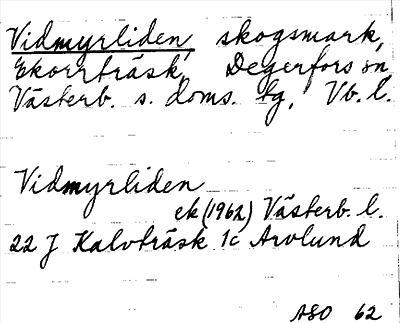 Vidmyrliden, skogsmark,
Ekorrträsk, Degerfors sn,
Västerb. s. doms. tg, Vb. l.
Vidmyrliden
ek (1962) Västerb. l.
22 J Kalvträsk 1c Arvlund
ASO 62